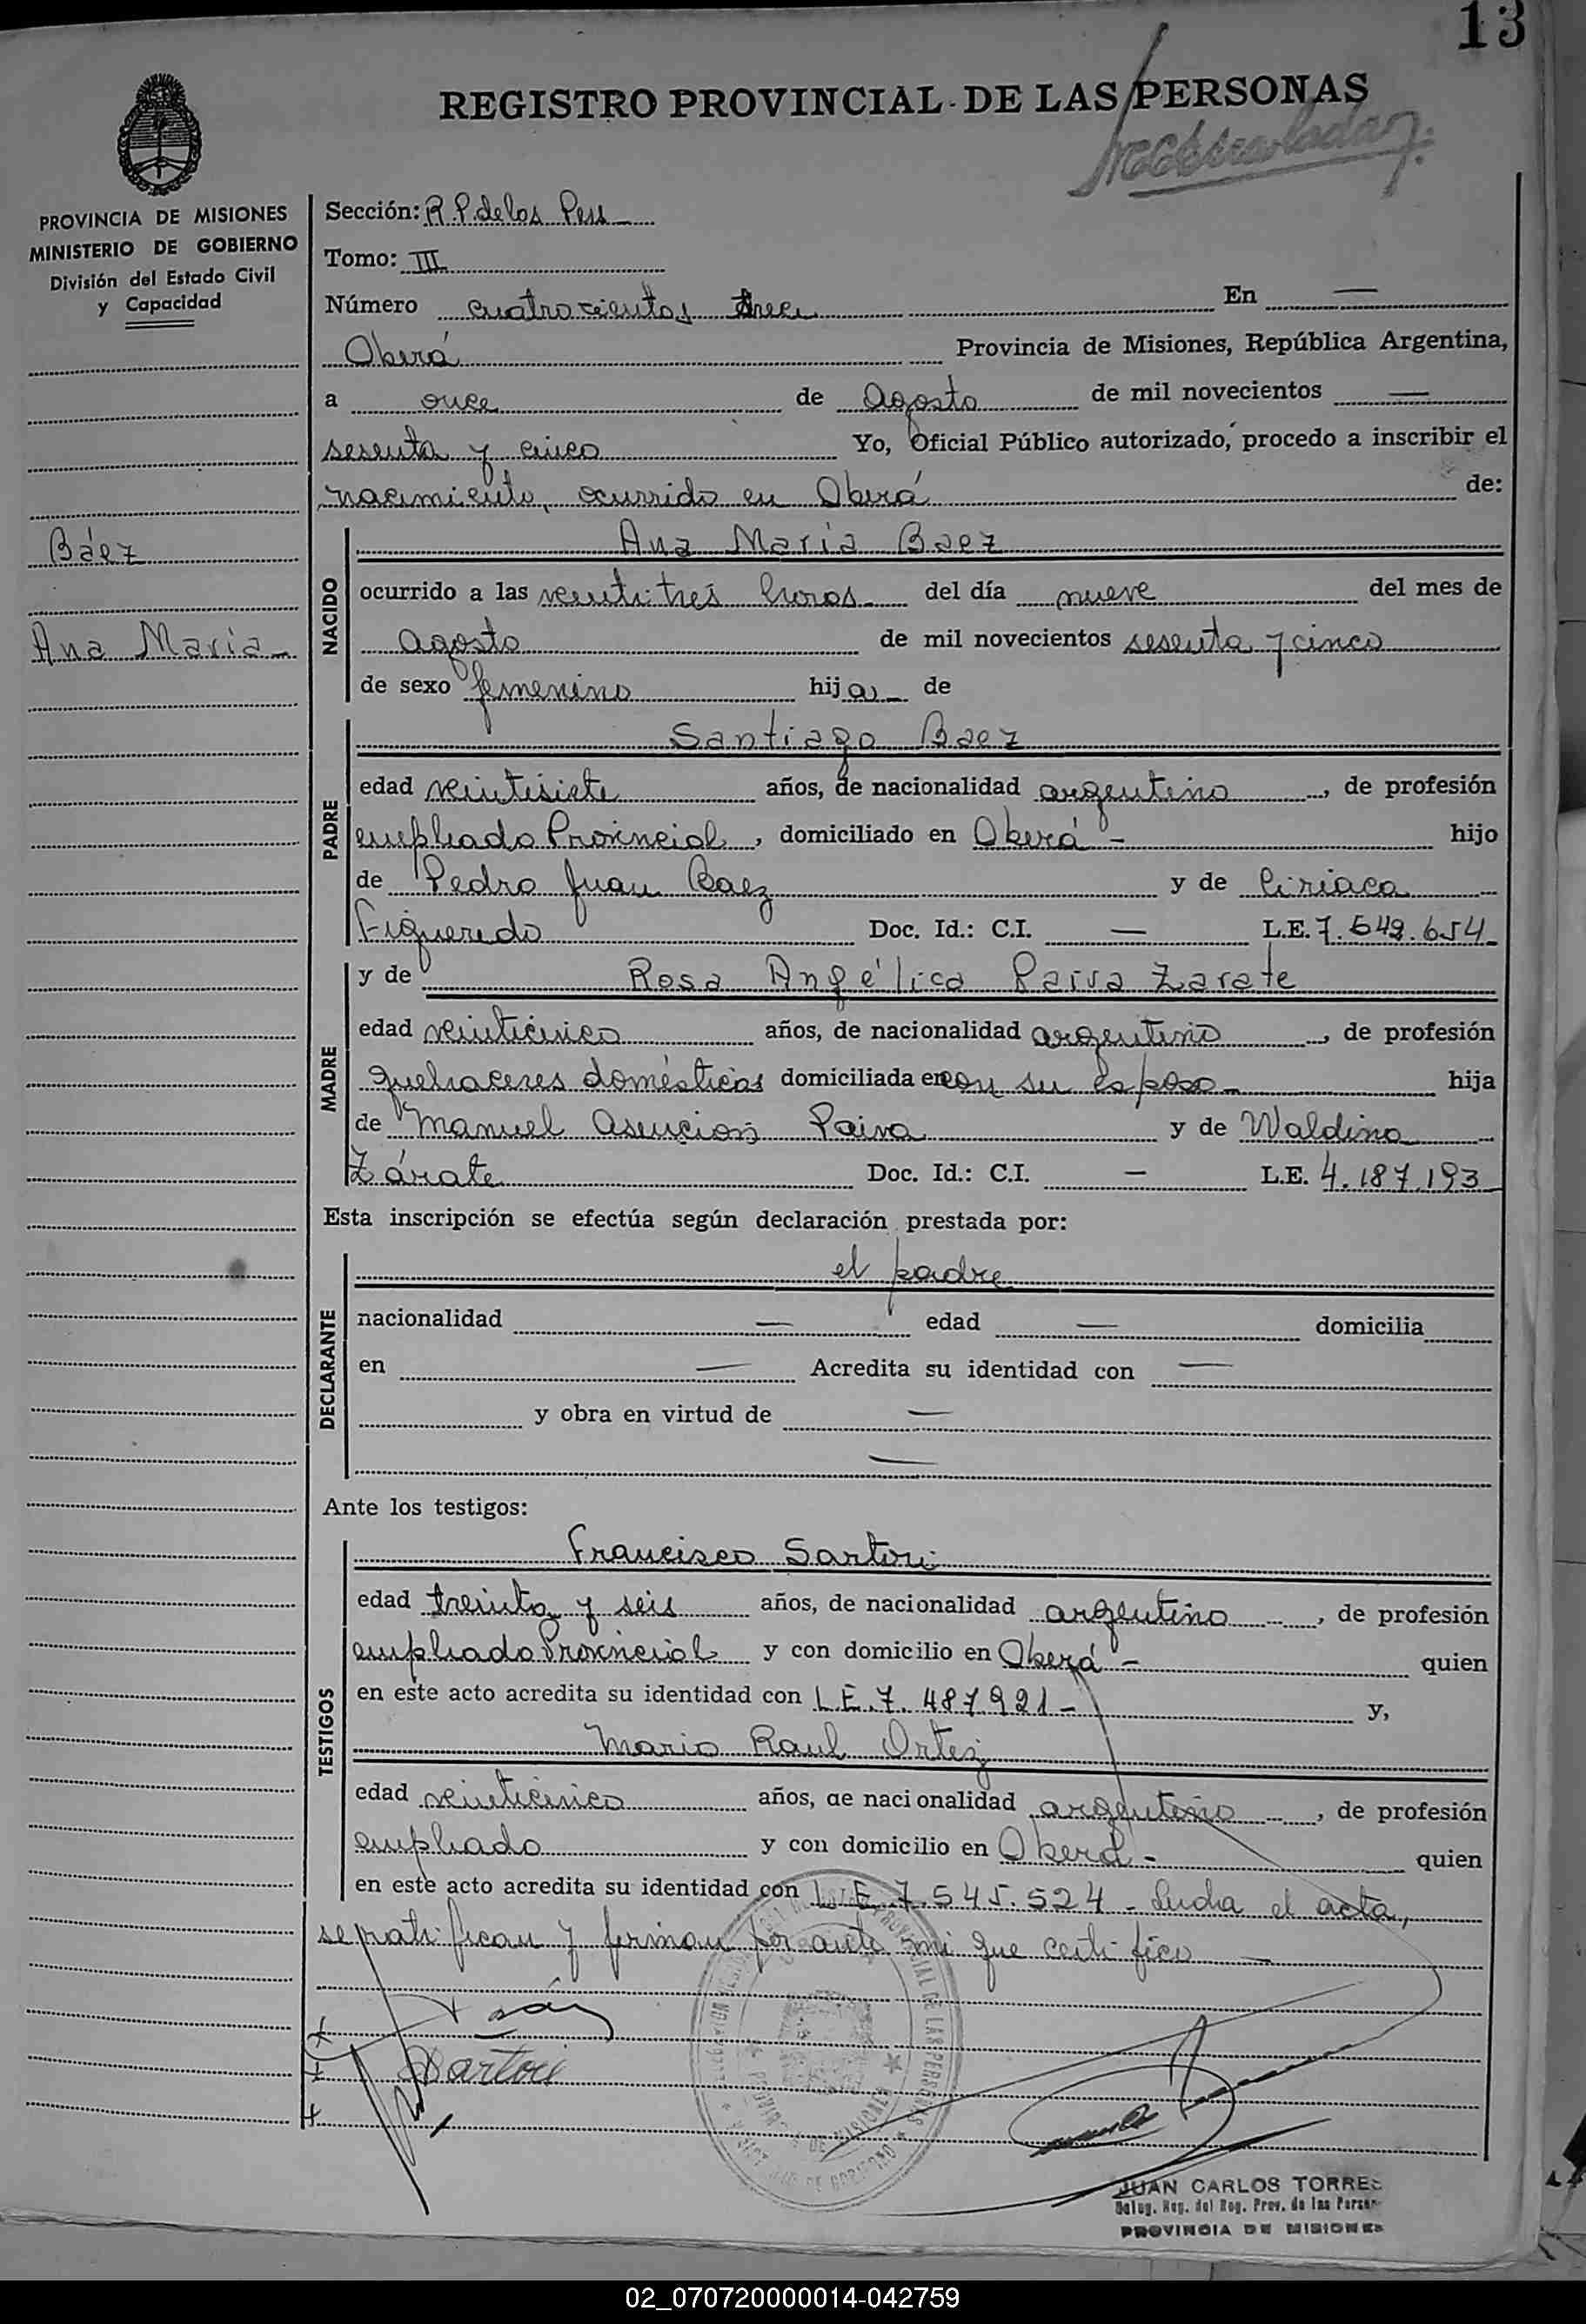 13
REGISTRO PROVINCIAL DE LAS PERSONAS
PROVINCIA DE MISIONES
MINISTERIO DE GOBIERNO
División del Estado Civil
y Capacidad
Báez
Ana María
Sección: R.P. de las Pers
Tomo: III
Número cuatrocientos trece En —
Oberá Provincia de Misiones, República Argentina,
a once de Agosto de mil novecientos —
sesenta y cinco Yo, Oficial Público autorizado, procedo a inscribir el
nacimiento, ocurrido en Oberá de:
NACIDO
Ana María Baez
ocurrido a las veintitrés horas del día nueve del mes de
agosto de mil novecientos sesenta y cinco
de sexo femenino hija de
PADRE
Santiago Baez
edad veintisiete años, de nacionalidad argentino, de profesión
empleado Provincial, domiciliado en Oberá - hijo
de Pedro Juan Baez y de Ciriaca
Figueredo Doc. Id.: C.I. — L.E. 7.549.654
MADRE
y de Rosa Angélica Paiva Zarate
edad veinticinco años, de nacionalidad argentina, de profesión
quehaceres domésticos domiciliada en con su esposo hija
de Manuel Asunción Paiva y de Waldina
Zárate Doc. Id.: C.I. — L.E. 4.187.193
Esta inscripción se efectúa según declaración prestada por:
DECLARANTE
el padre
nacionalidad — edad — domicilia
en — Acredita su identidad con —
y obra en virtud de —
—
Ante los testigos:
TESTIGOS
Francisco Sartori
edad treinta y seis años, de nacionalidad argentino, de profesión
empleado Provincial y con domicilio en Oberá - quien
en este acto acredita su identidad con L.E. 7.487.921 - y,
Mario Raul Ortez
edad veinticinco años, de nacionalidad argentino, de profesión
empleado y con domicilio en Oberá - quien
en este acto acredita su identidad con L.E. 7.545.524 - Leida el acta,
se ratifican y firman por ante mi que certifico —
Sartori
JUAN CARLOS TORRES
PROVINCIA DE MISIONES
02_070720000014-042759